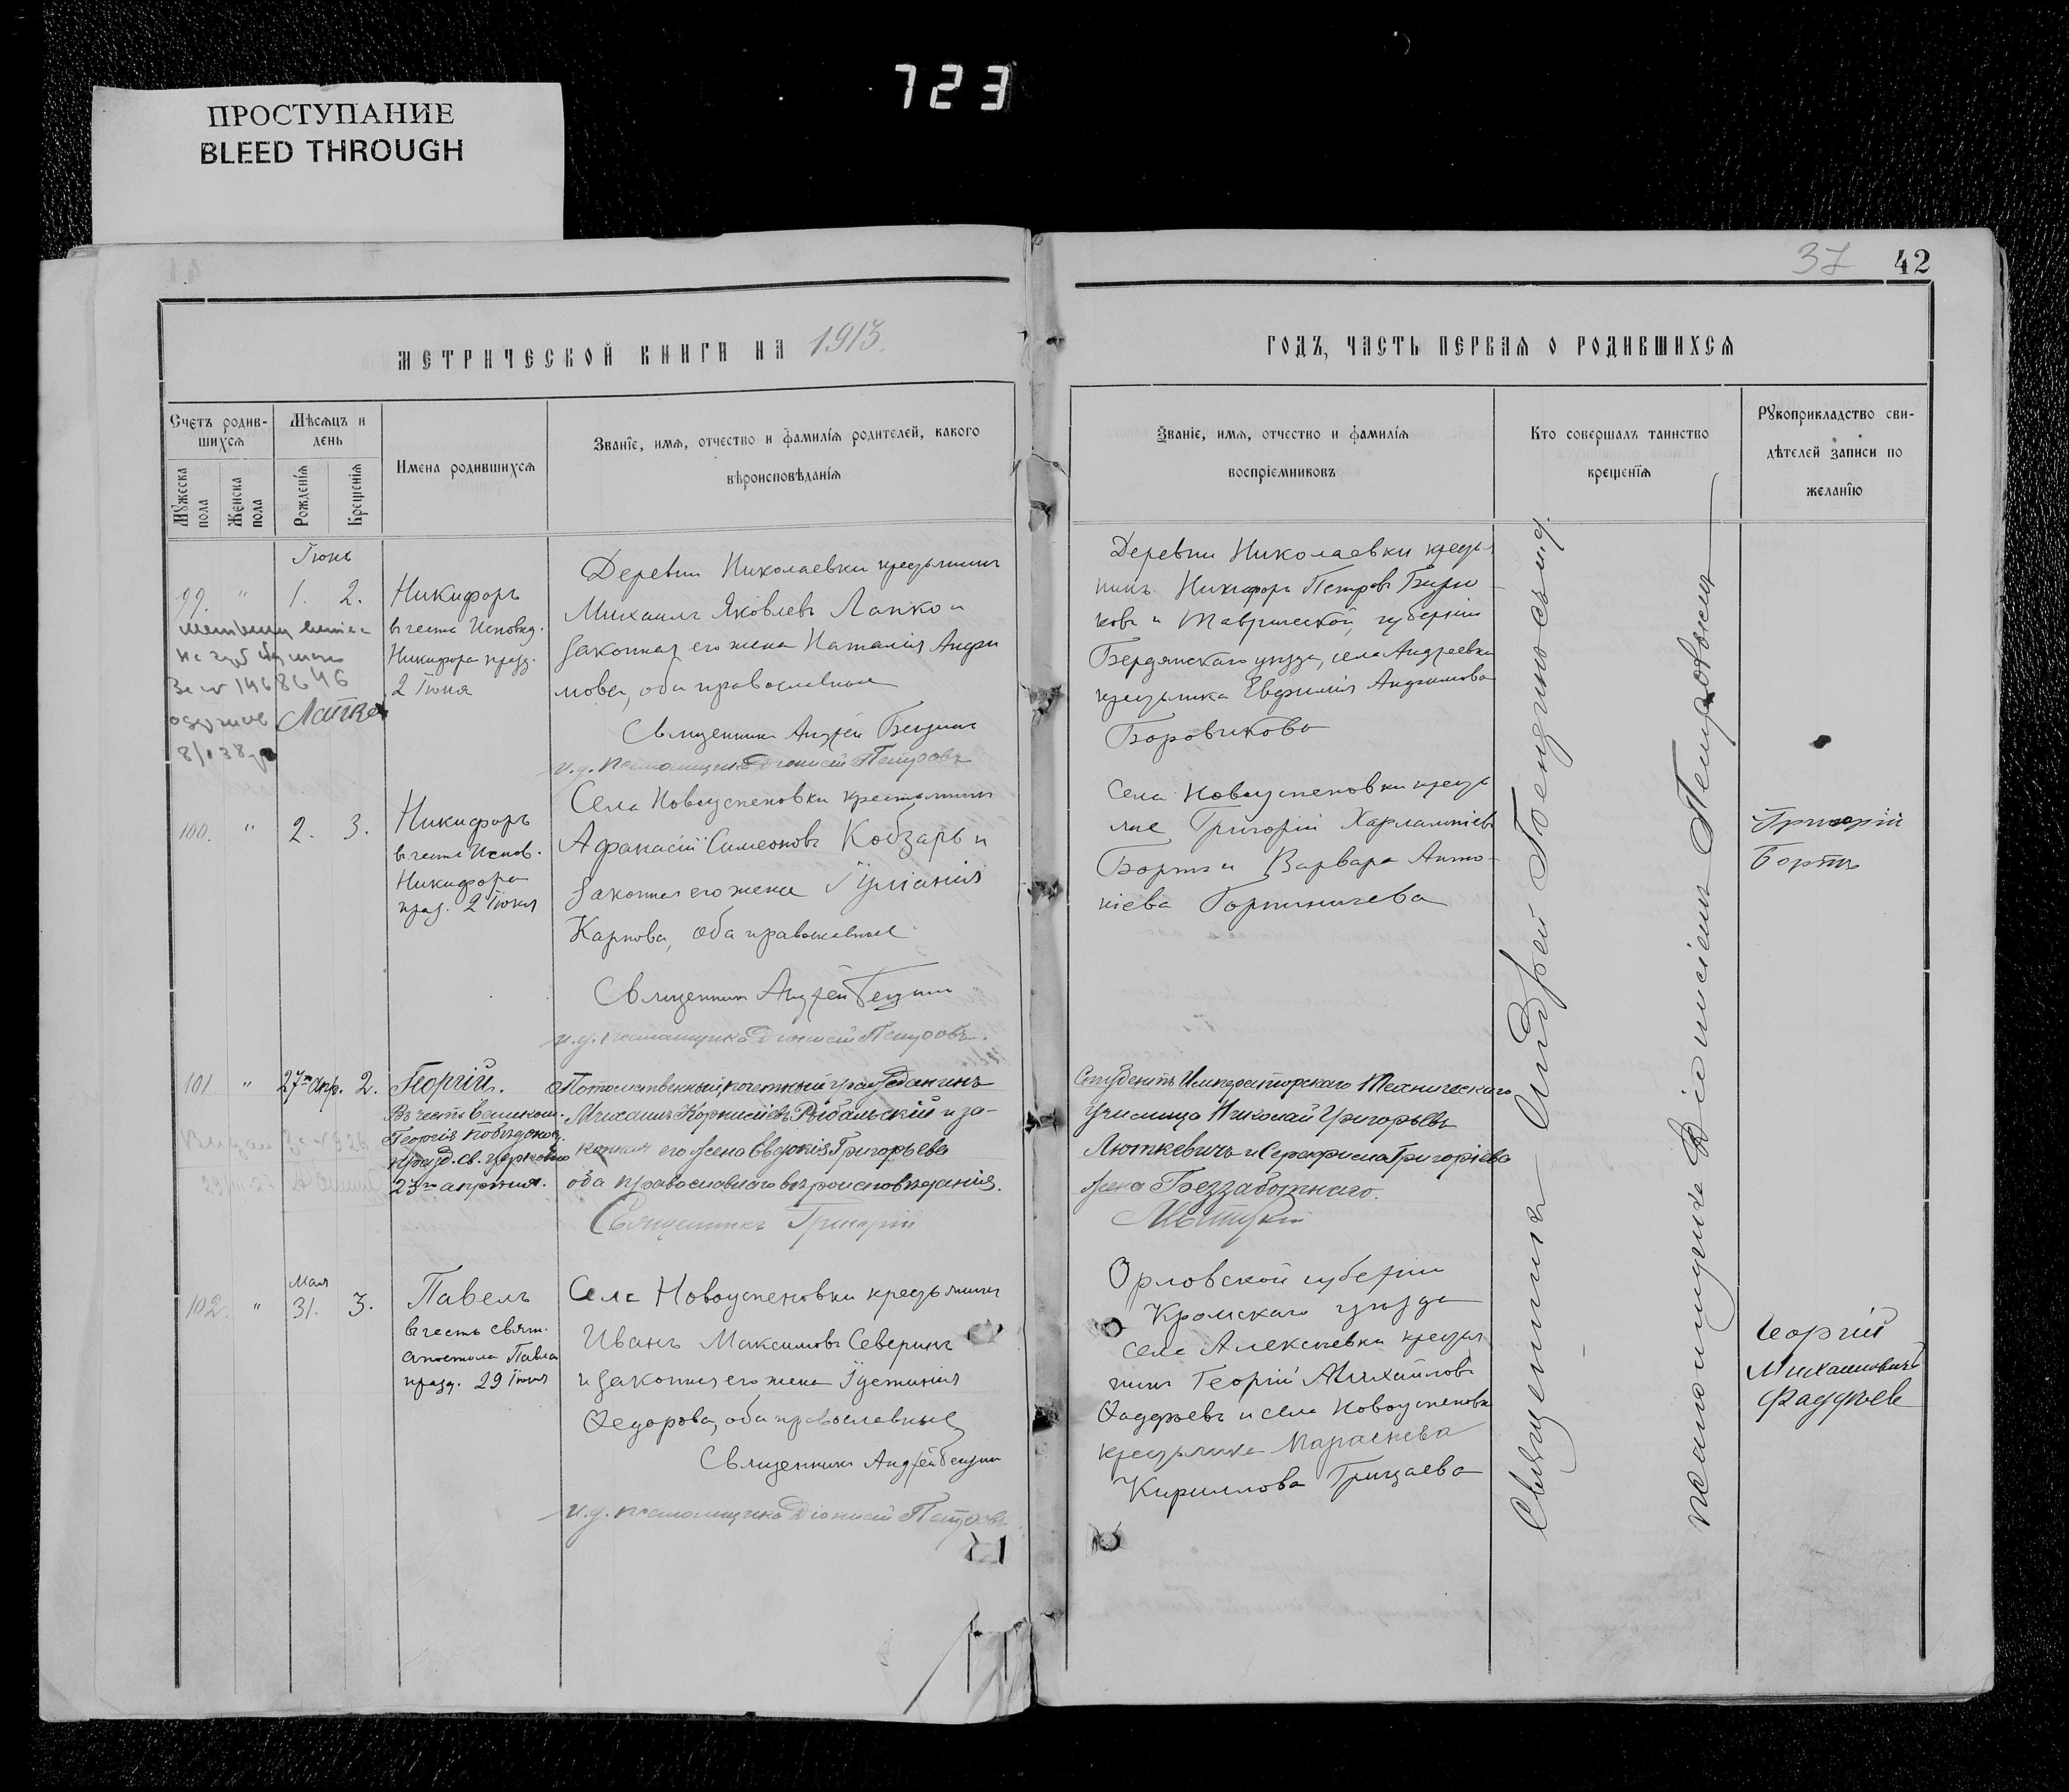 723
ПРОСТУПАНИЕ
BLEED THROUGH
37 42
МЕТРИЧЕСКОЙ КНИГИ НА 1913.
ГОДЪ, ЧАСТЬ ПЕРВАЯ О РОДИВШИХСЯ
Счетъ родив-
шихся
Мужеска пола
Женска пола
Мѣсяцъ и
день
Рожденія
Крещенія
Имена родившихся
Званіе, имя, отчество и фамилія родителей, какого
вѣроисповѣданія
Званіе, имя, отчество и фамилія
воспріемниковъ
Кто совершалъ таинство
крещенія
Рукоприкладство сви-
дѣтелей записи по
желанію
Іюнь
99. " 1. 2.
Никифоръ
въ честь Исповѣд.
Никифора празд.
2 Іюня
Деревни Николаевки крестьянинъ
Михаилъ Яковлевъ Лапко и
законная его жена Наталія Анфи
мова, оба православные
Священникъ Андрей
и.д. псаломщика Діонисій Петровъ
Деревни Николаевки кресть
нинъ Никифоръ Петровъ Бирю
ковъ и Таврической губерніи
Бердянскаго уѣзда, села Андреевки
крестьянка Евфимія Анфимова
Боровикова
100. " 2. 3.
Никифоръ
въ честь Испов.
Никифора
праз. 2 Іюня
Села Новоуспеновки крестьянинъ
Афанасій Симеоновъ Кобзарь и
законная его жена Іуліанія
Карпова, оба православные
Священникъ Андрей
и.д. псаломщика Діонисій Петровъ.
Села Новоуспеновки кресть
яне Григорій Харлампіевъ
Бортъ и Варвара Анто-
ніева
Григорій
Бортъ
101 " 27го Апр. 2.
Георгій.
Въ честь Великом.
Георгія Побѣдонос.
празд. св. церковію
23го апрѣля.
Потомственный почетный гражданинъ
Михаилъ Корниліевъ Рыбальскій и за-
конная его жена Евдокія Григорьева
оба православнаго вѣроисповѣданія.
Священникъ Григорій
Студентъ Императорскаго Техническаго
училища Николай Григорьевъ
Люткевичъ и Серафима Григоріева
жена Беззаботнаго.
Мая
102. " 31. 3.
Павелъ
въ честь свят.
апостола Павла
празд. 29 Іюня
Села Новоуспеновки крестьянинъ
Иванъ Максимовъ Северинъ
и законная его жена Іустинія
Ѳедорова, оба православные
Священникъ Андрей
и.д. псаломщика Діонисій Петровъ
Орловской губерніи
Кромскаго уѣзда
села Алексѣевки крестья
нинъ Георгій Михайловъ
Фаддѣевъ и села Новоуспеновки
крестьянка Параскева
Кириллова Грицаева
Георгій
Михаиловичъ
Фаддѣевъ
Священникъ Андрей
псаломщикъ Діонисіемъ Петровымъ